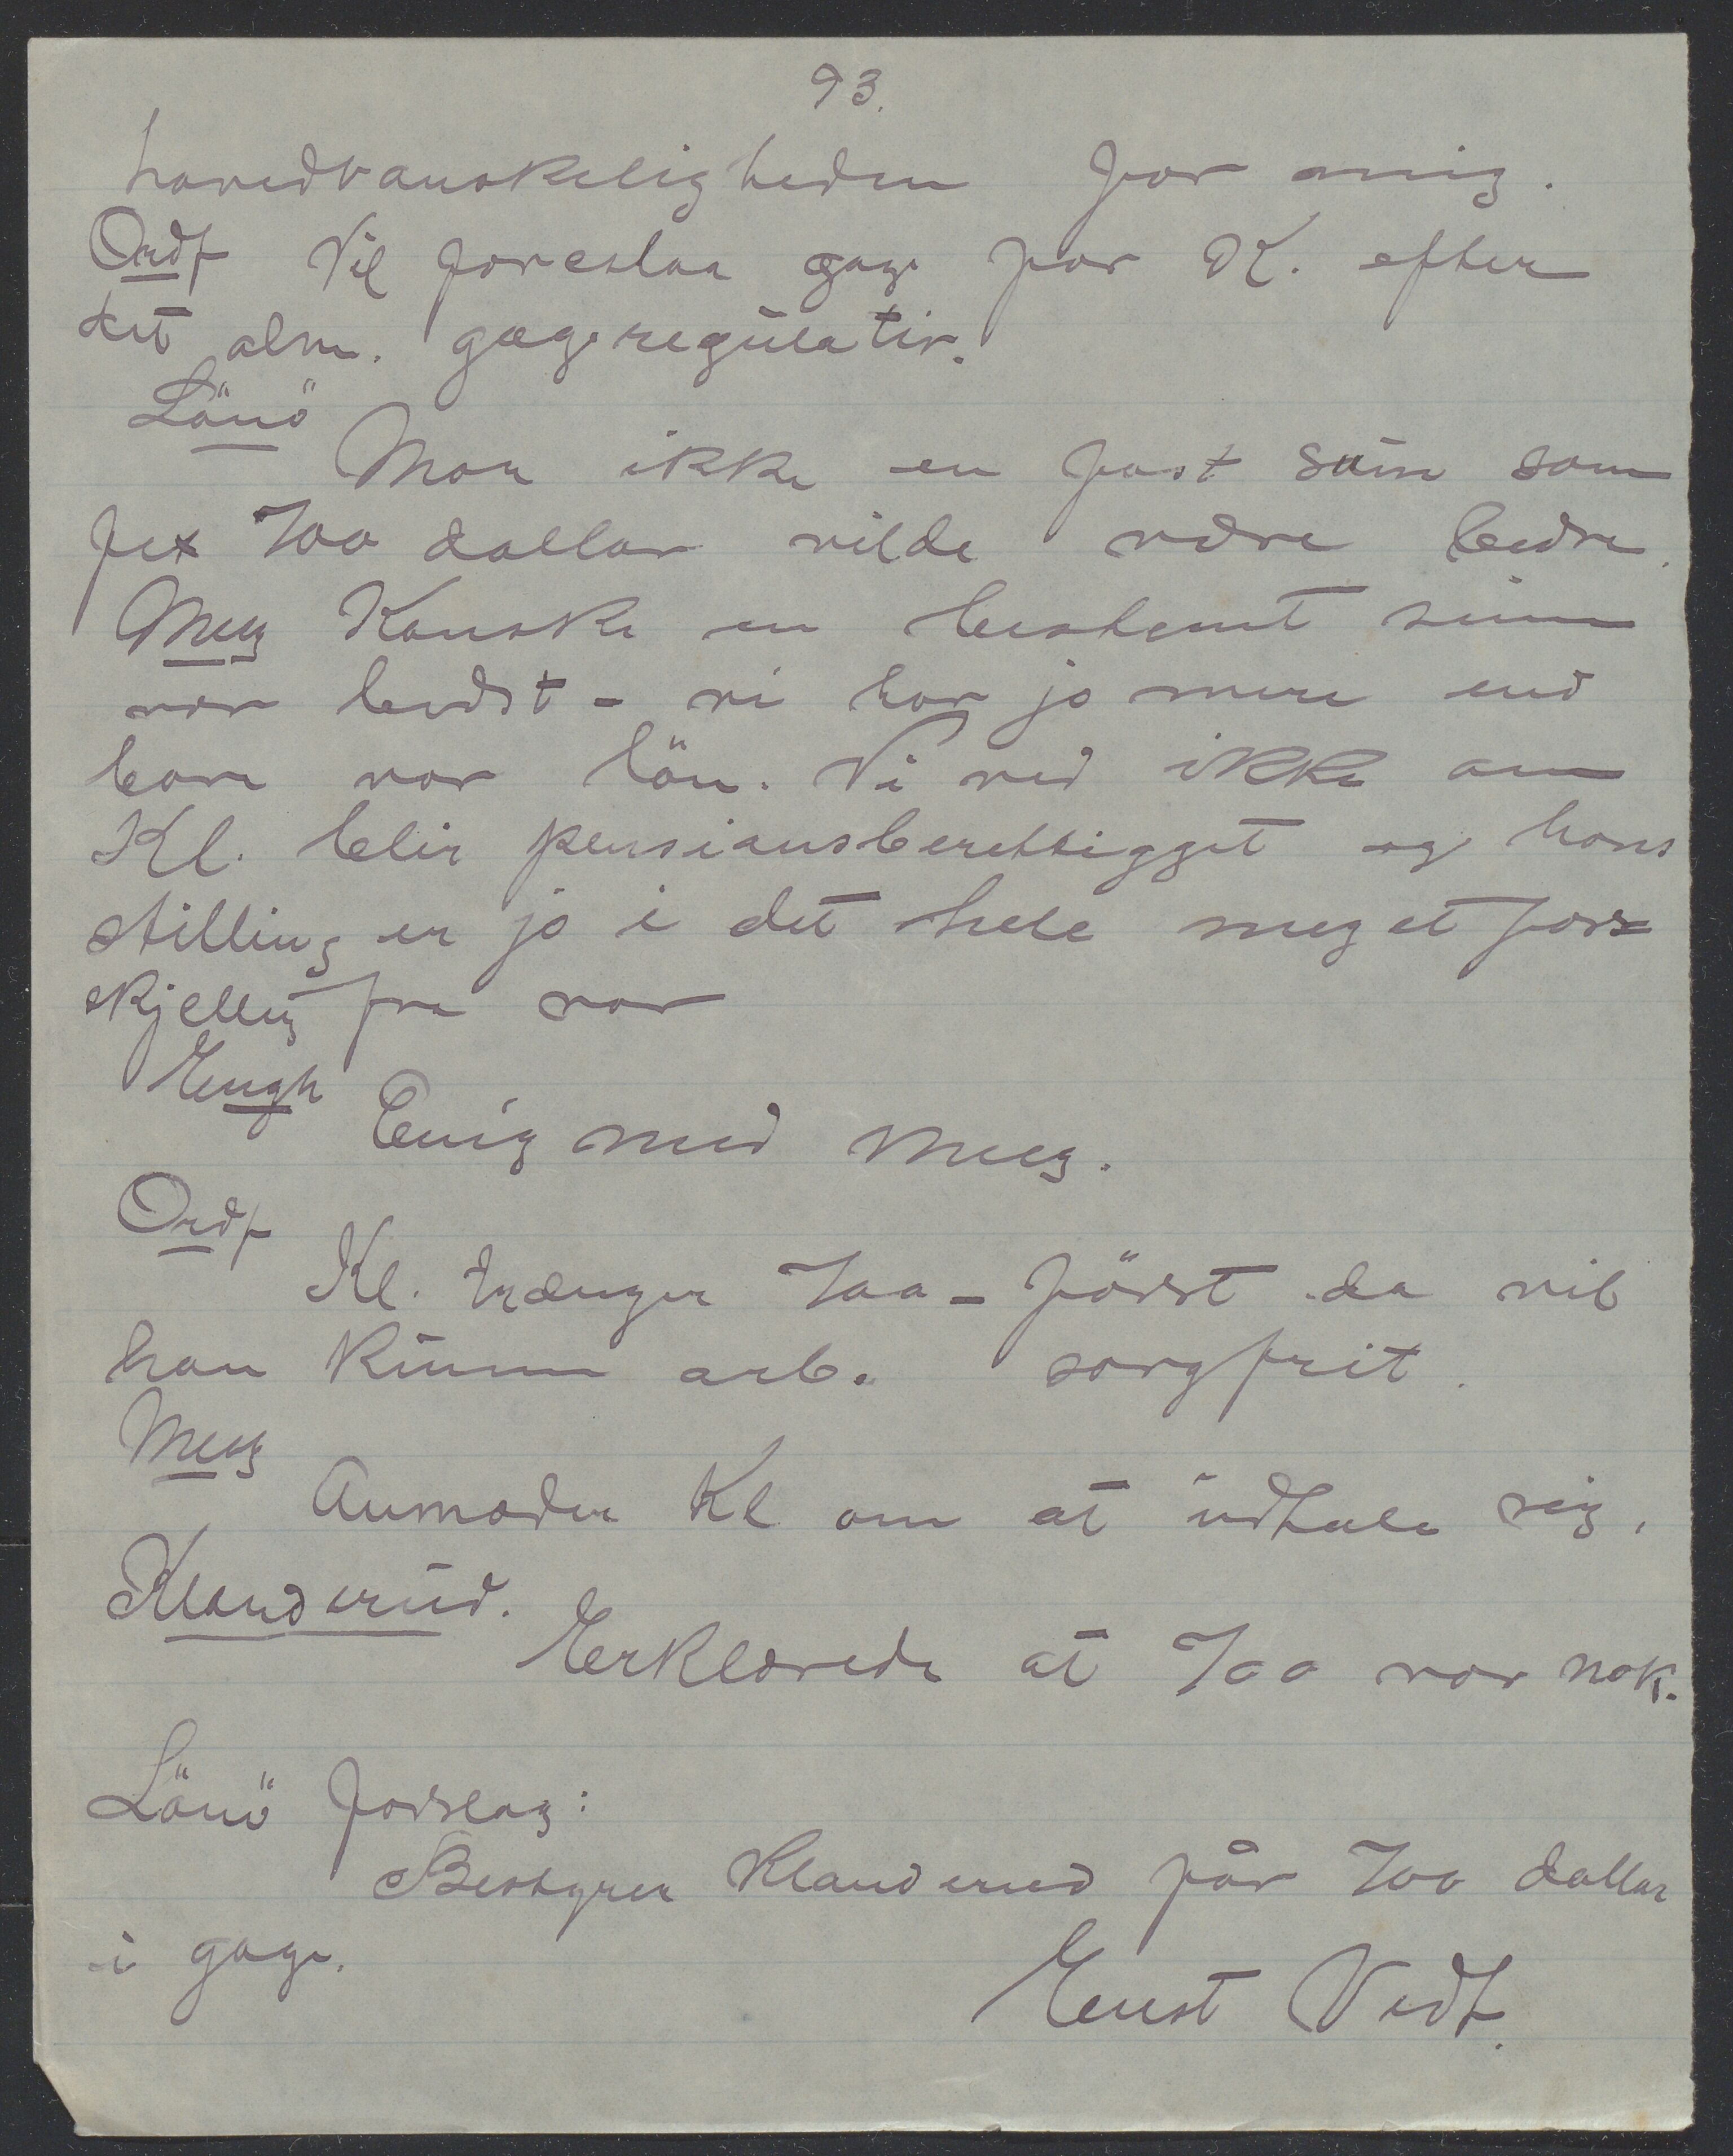 93.
hovedvanskeligheden for mig.
Ordf Vil foreslaa gage for K. efter
det alm. gageregulativ.
Lönö
Mon ikke en fast sum som
fex 700 dollar vilde være bedre.
Meez Kanske en bestemt sum
var bedst - vi har jo mere end
bare vor lön. Vi ved ikke om
Kl. blir pensionsberettigget og hans
stilling er jo i det hele meget for=
skjellig fra vor
Engh
Enig med Meeg.
Ordf
Kl. trænger 700 - först da vil
han kunne arb. sorgfrit.
Meeg
Anmoder Kl om at udtale sig.
Klanderud.
Erklærede at 700 var nok.
Lönö forslag:
Bestyrer Klanderud får 700 dollar
i gage.
Enst Vedt.